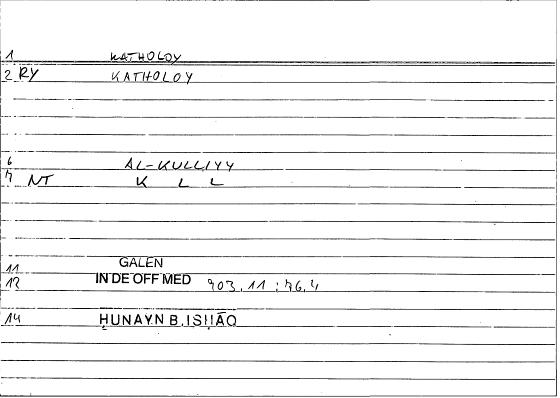 1 KATHOLOY
2 RY KATHOLOY
6 AL-KULLIYY
7 NT K L L
11 GALEN
12 IN DE OFF MED 903.11 : 76.4
14 ḤUNAYN B. ISḤĀQ